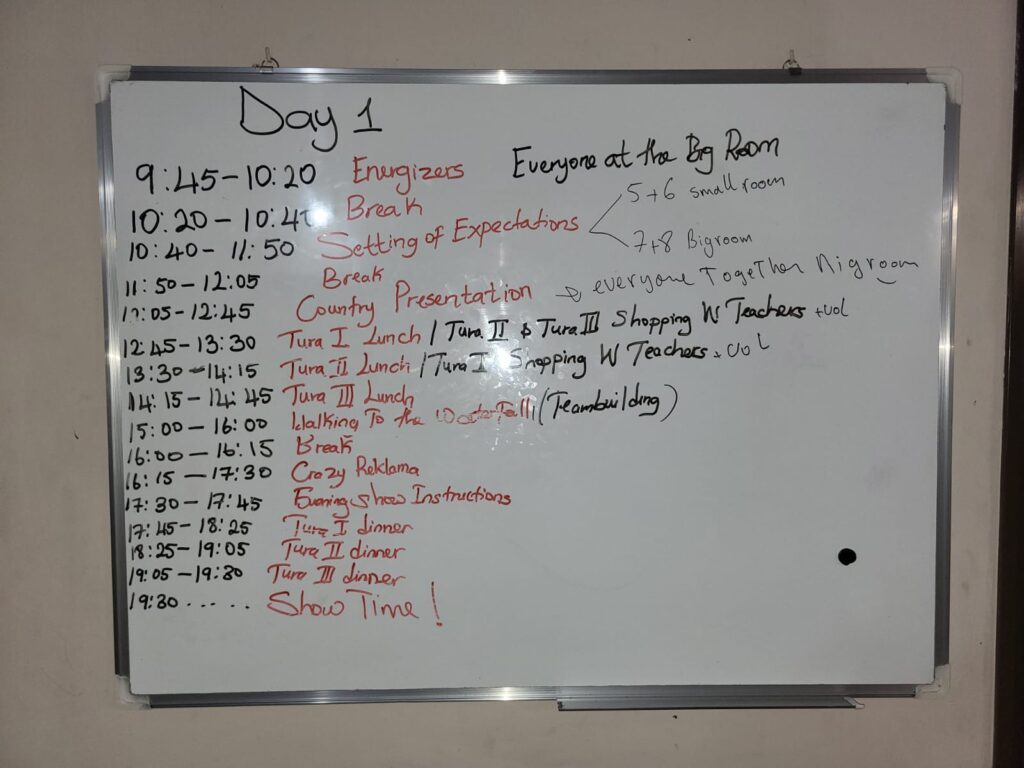 Day 1
9:45-10:20 Energizers Everyone at the Big Room
10:20-10:40 Break
10:40-11:50 Setting of Expectations 5+6 small room
7+8 Bigroom
11:50-12:05 Break
12:05-12:45 Country Presentation → everyone Together Bigroom
12:45-13:30 Tura I Lunch / Tura II & Tura III Shopping W Teachers +Vol
13:30-14:15 Tura II Lunch / Tura I Shopping W Teachers + Vol
14:15-14:45 Tura III Lunch
15:00-16:00 Walking To the Waterfall (Teambuilding)
16:00-16:15 Break
16:15-17:30 Crazy Reklama
17:30-17:45 Evening Show Instructions
17:45-18:25 Tura I dinner
18:25-19:05 Tura II dinner
19:05-19:30 Tura III dinner
19:30...... Show Time!